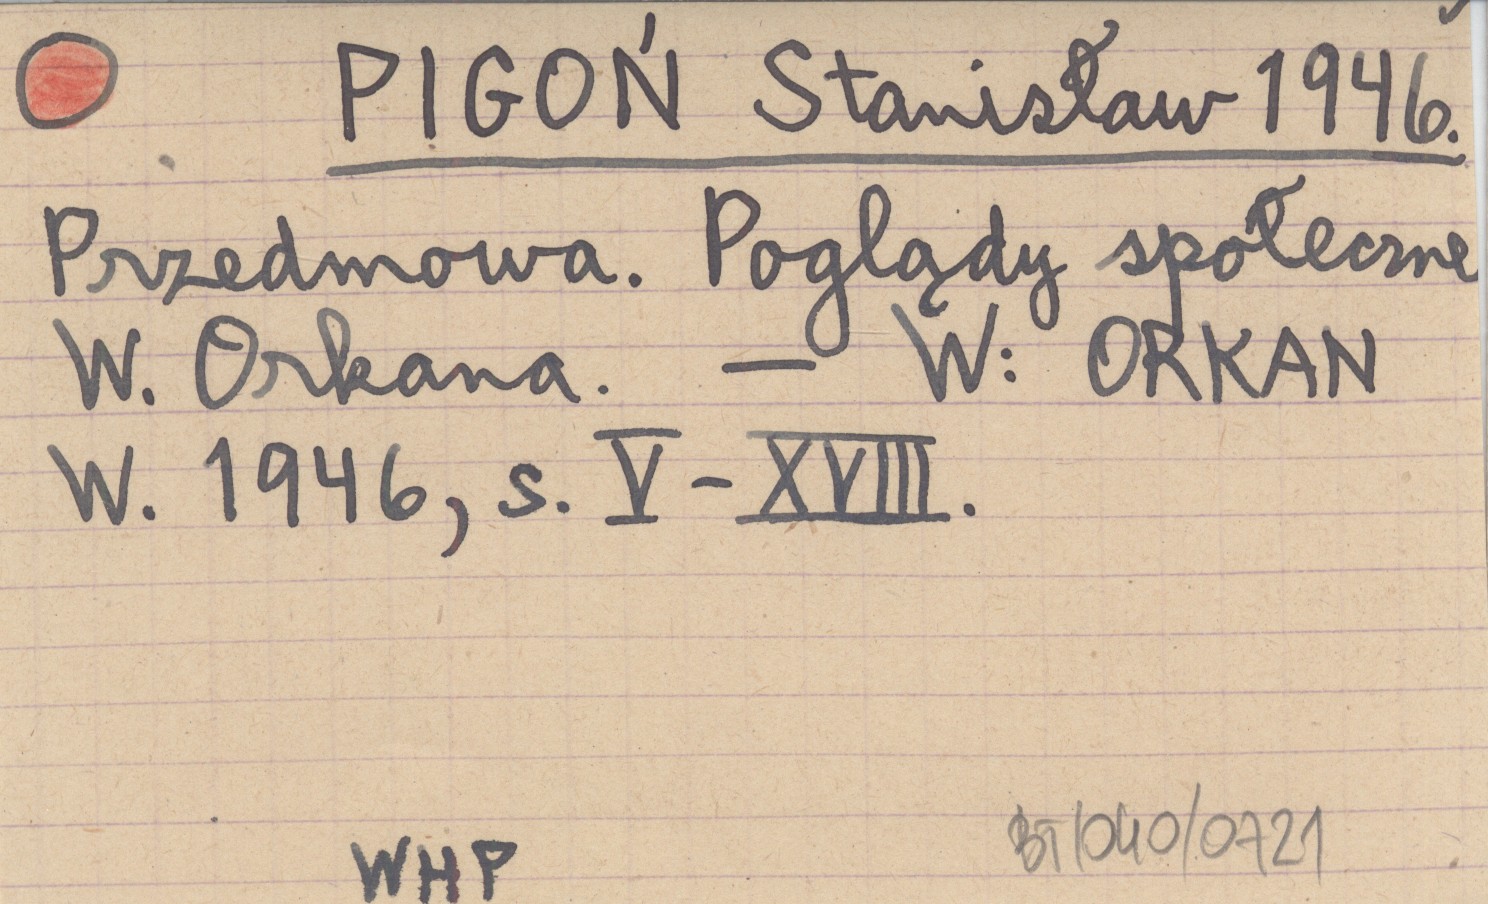 PIGOŃ Stanisław 1946.
Przedmowa. Poglądy społeczne
W. Orkana. — W: ORKAN
W. 1946, s. V - XVIII.
WHP
BT/040/0721